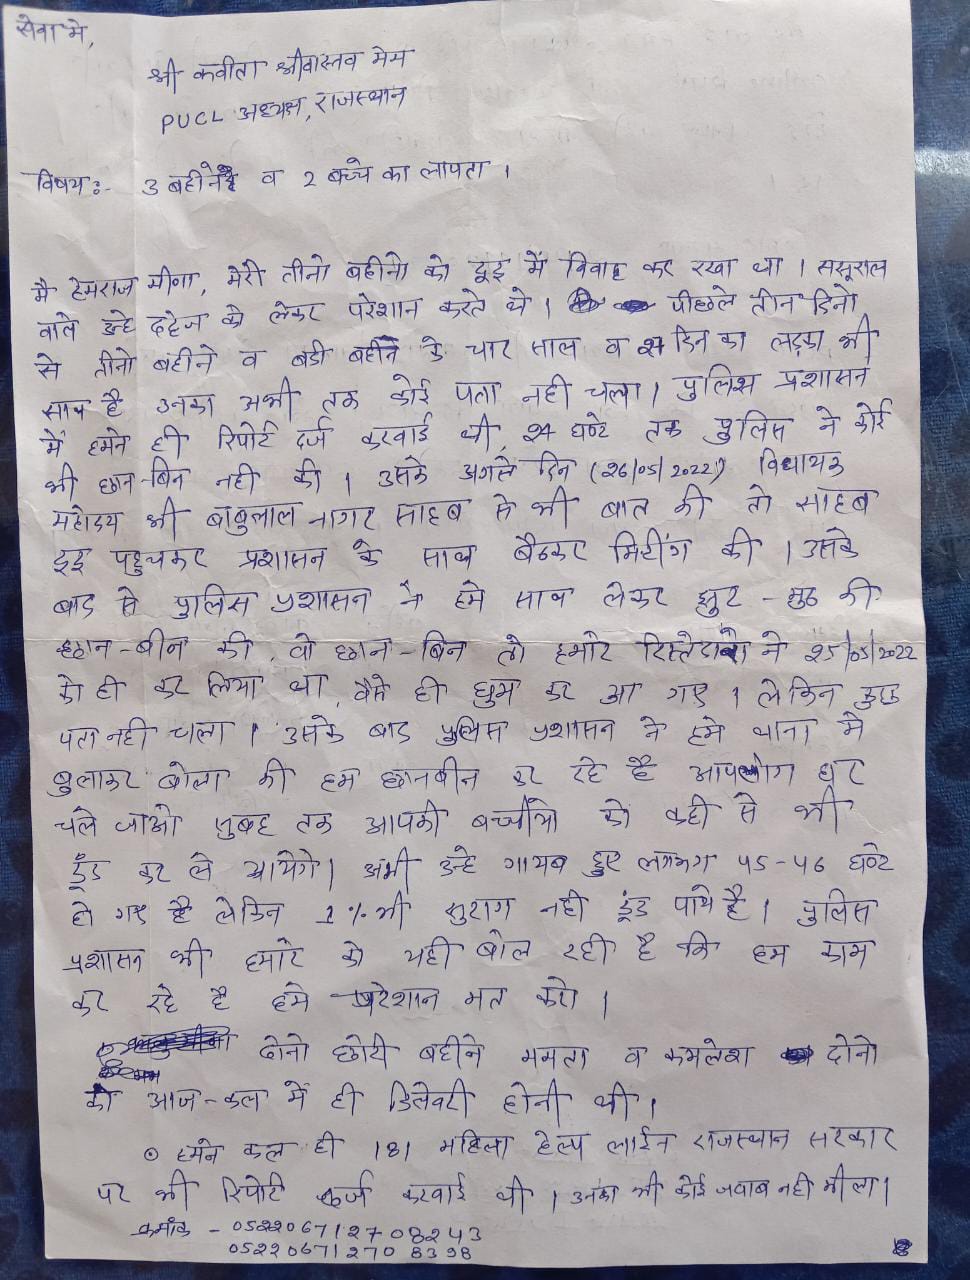 सेवा में,
श्री कवीता श्रीवास्तव मेम
PUCL अध्यक्ष, राजस्थान
विषय:- 3 बहीने व 2 बच्चे का लापता ।
मै हेमराज मीणा, मेरी तीनो बहीनो को दूदू में विवाह कर रखा था । ससूराल
वाले उन्हे दहेज को लेकर परेशान करते थे । पीछले तीन दिनो
से तीनो बहीने व बडी बहीन के चार साल व 24 दिन का लड़का भी
साथ है उनका अभी तक कोई पता नही चला । पुलिस प्रशासन
में हमने ही रिपोर्ट दर्ज करवाई थी, 24 घण्टे तक पुलिस ने कोई
भी छान-बिन नही की । उसके अगले दिन (26/05/2022) विधायक
महोदय श्री बाबुलाल नागर साहब से भी बात की तो साहब
दूदू पहुचकर प्रशासन के साथ बैठकर मिटींग की । उसके
बाद से पुलिस प्रशासन ने हमे साथ लेकर झुट-मुठ की
छान-बीन की, वो छान-बिन तो हमारे रिस्तेदारो ने 25/05/2022
को ही कर लिया था, वैसे ही घुम कर आ गए । लेकिन कुछ
पता नही चला । उसके बाद पुलिस प्रशासन ने हमे थाना मे
बुलाकर बोला की हम छानबीन कर रहे है आपलोग घर
चले जाओ सुबह तक आपकी बच्चीयो को कही से भी
ढूंड कर ले आयेगे । अभी उन्हे गायब हुए लगभग 45-46 घण्टे
हो गए है लेकिन 1% भी सुराग नही ढूंड पाये है । पुलिस
प्रशासन भी हमारे को यही बोल रही है कि हम काम
कर रहे है हमे परेशान मत करो ।
दोनो छोटी बहीने ममता व कमलेश दोनो
की आज-कल में ही डिलेवरी होनी थी ।
⊙ हमने कल ही 181 महिला हेल्प लाईन राजस्थान सरकार
पर भी रिपोर्ट दर्ज करवाई थी । उनका भी कोई जवाब नही मीला ।
क्रमांक - 052206712708243
05220671270 8398